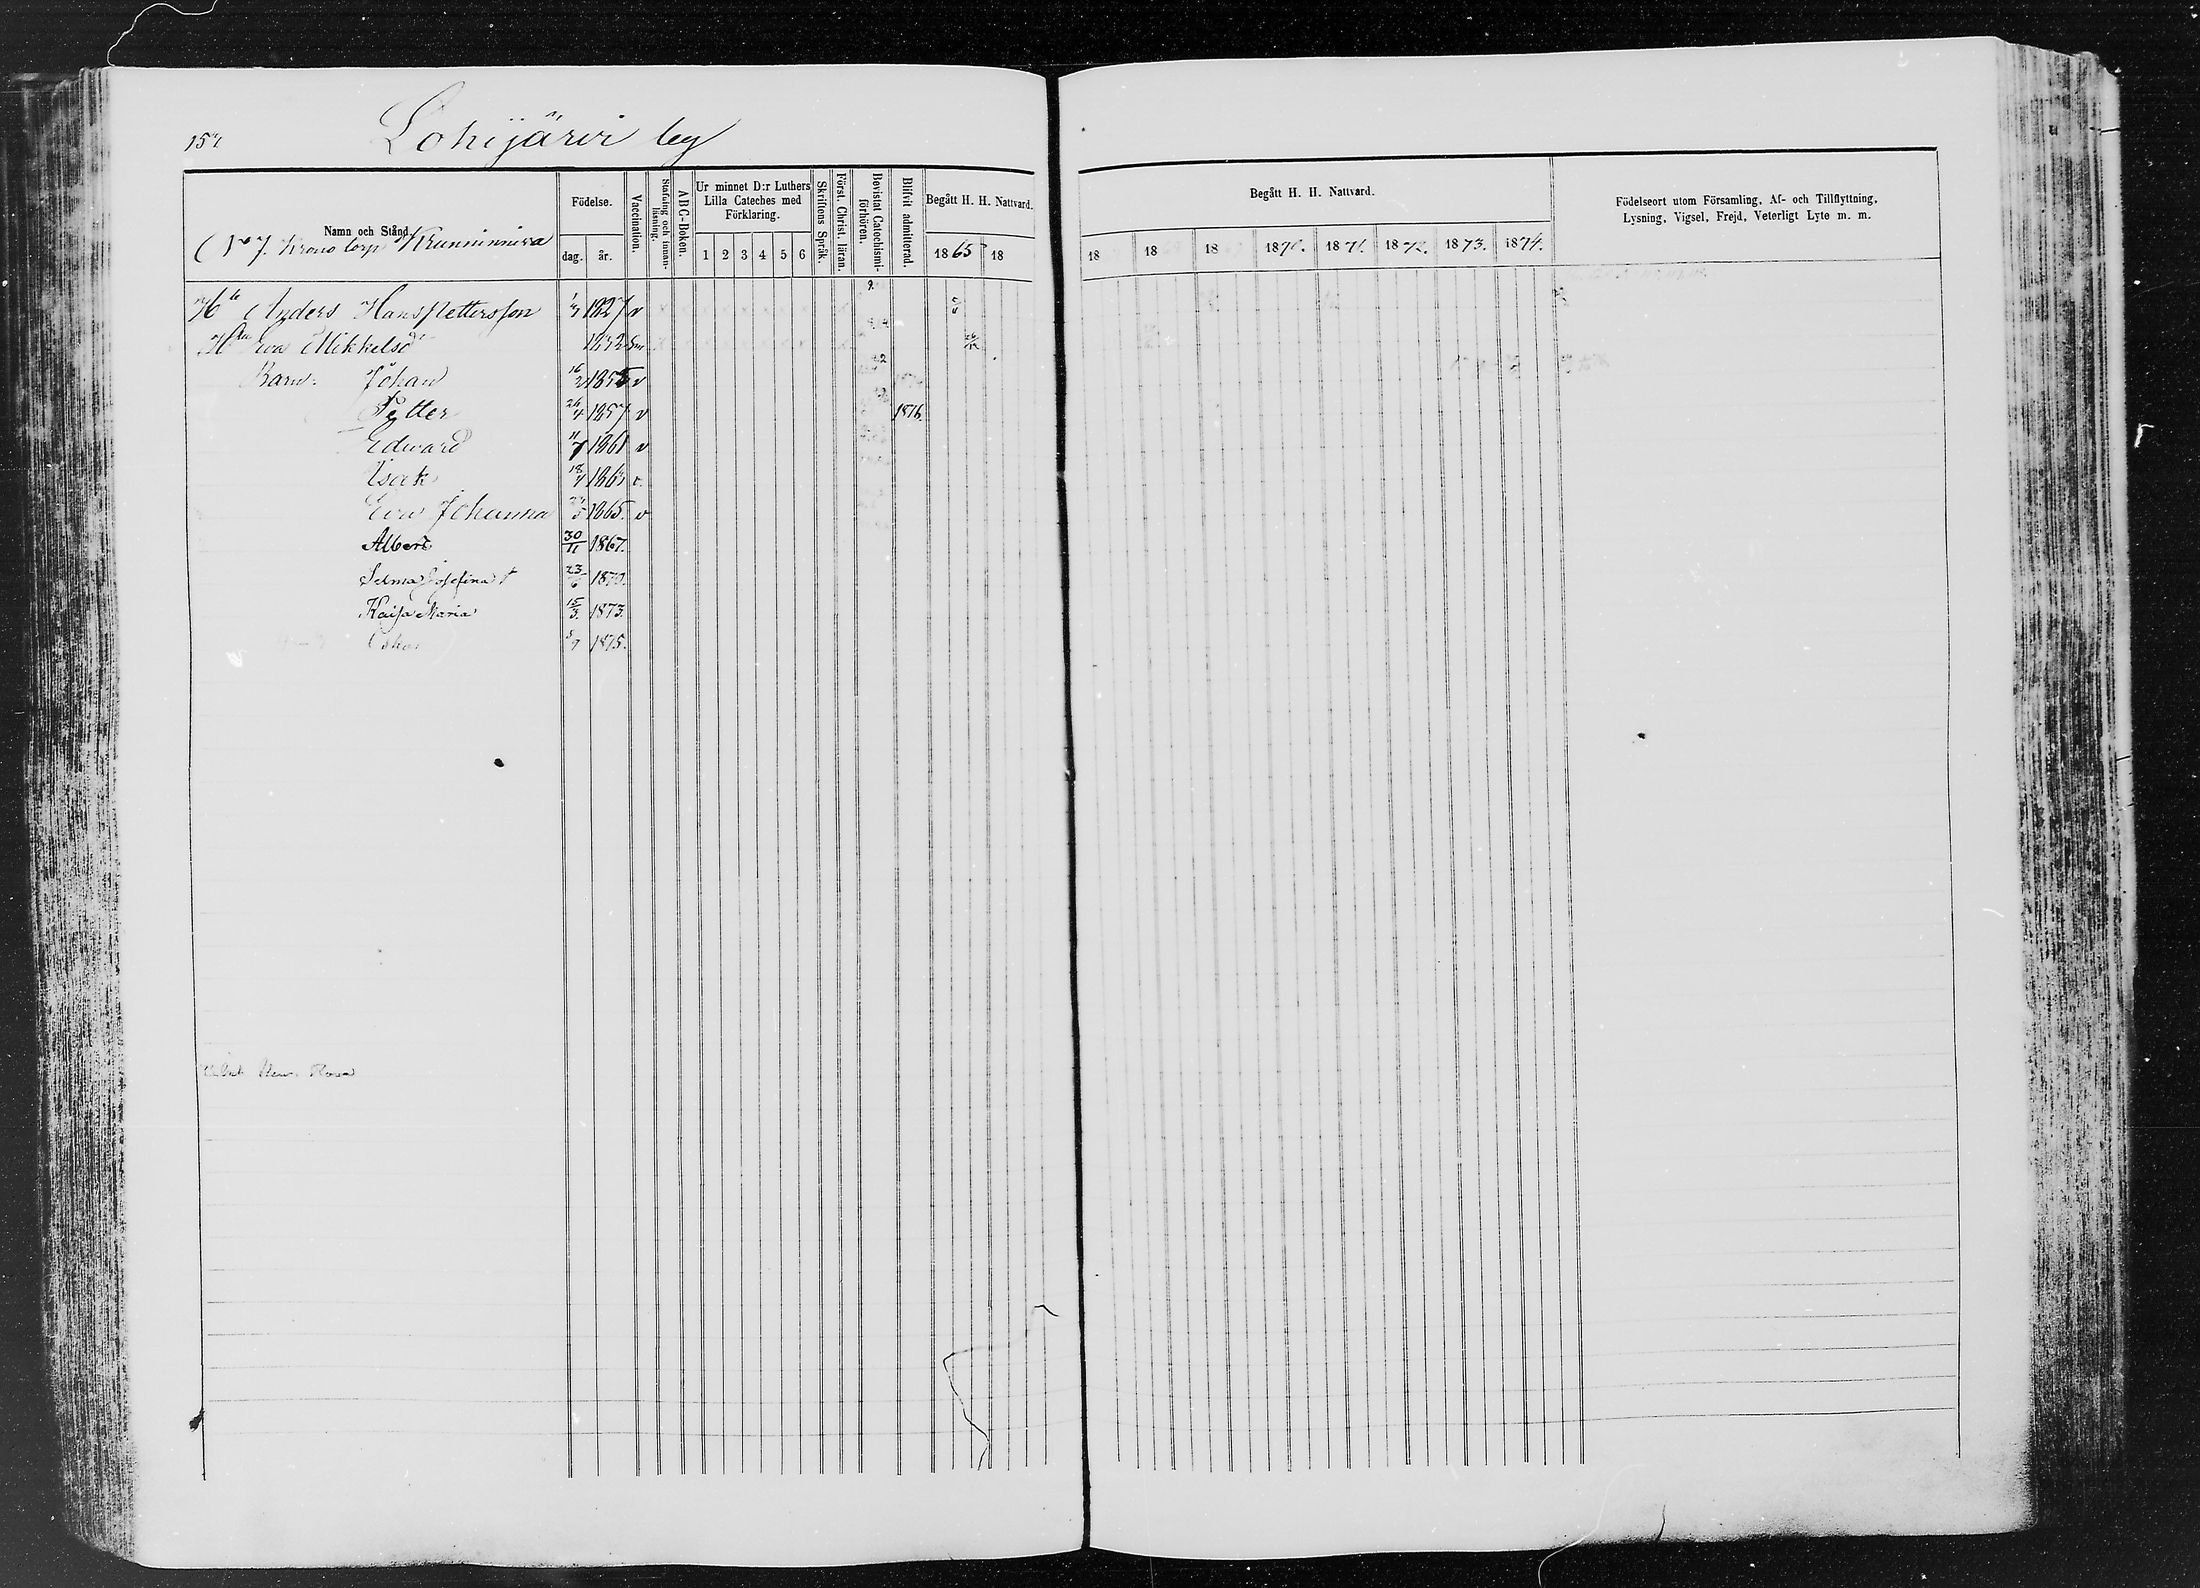 Lohijärvi by
Namn och Stånd.
Födelse.
dag. år.
Vaccination.
Stafning och innanläsning.
ABC-Boken.
Ur minnet D:r Luthers Lilla Cateches med Förklaring.
1 2 3 4 5 6
Skriftens Språk.
Först. Christ. läran.
Bevistat Catechismiförhören.
Blifvit admitterad.
Begått H. H. Nattvard.
1865 18
Begått H. H. Nattvard.
18 18 18 1870. 1871. 1872. 1873. 1874.
Födelseort utom Församling, Af- och Tillflyttning,
Lysning, Vigsel, Frejd, Veterligt Lyte m. m.
No 7. Krono torp Kunniniva
Anders Hans Pettersson 1827 v
Eva Mikkelsd 1832
Barn: Johan 16/2 1855 v
Petter 26/4 1857 v 1876.
Edward 11/7 1861 v
Isak 18/4 1863 v.
Eva Johanna 1865. v
Albert 30/11 1867.
Selma Josefina † 23/6 1870.
Kaisa Maria 15/3. 1873.
Oskar 5/7 1875.